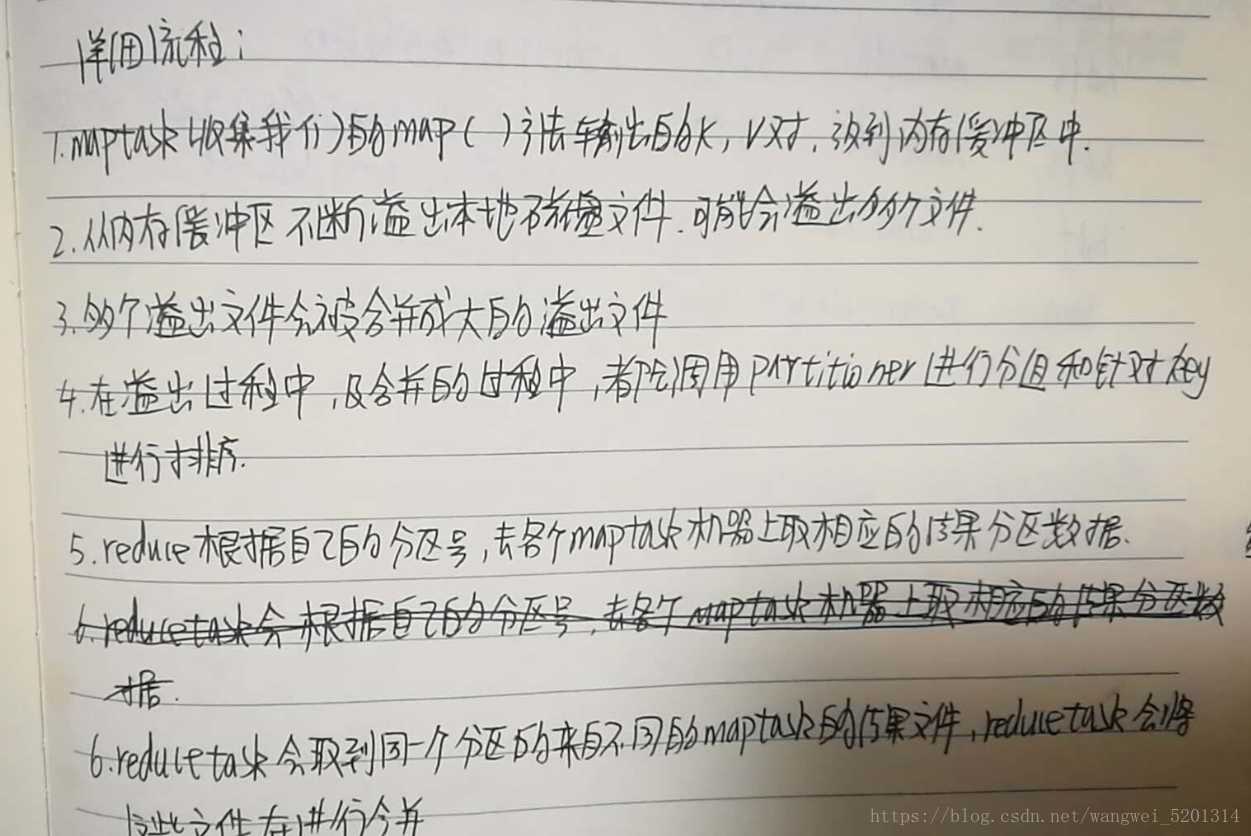 详细流程:
1.maptask收集我们的map( )方法输出的k,v对,放到内存缓冲区中.
2.从内存缓冲区不断溢出本地磁盘文件.可能会溢出多个文件.
3.多个溢出文件会被合并成大的溢出文件
4.在溢出过程中,及合并的过程中,都要调用partitioner进行分组和针对key
进行排序.
5.reduce根据自己的分区号,去各个maptask机器上取相应的结果分区数据.
6.reducetask会根据自己的分区号,去各个maptask机器上取相应的结果分区数
据.
6.reducetask会取到同一个分区的来自不同的maptask的结果文件,reducetask会将
这些文件在进行合并
https://blog.csdn.net/wangwei_5201314